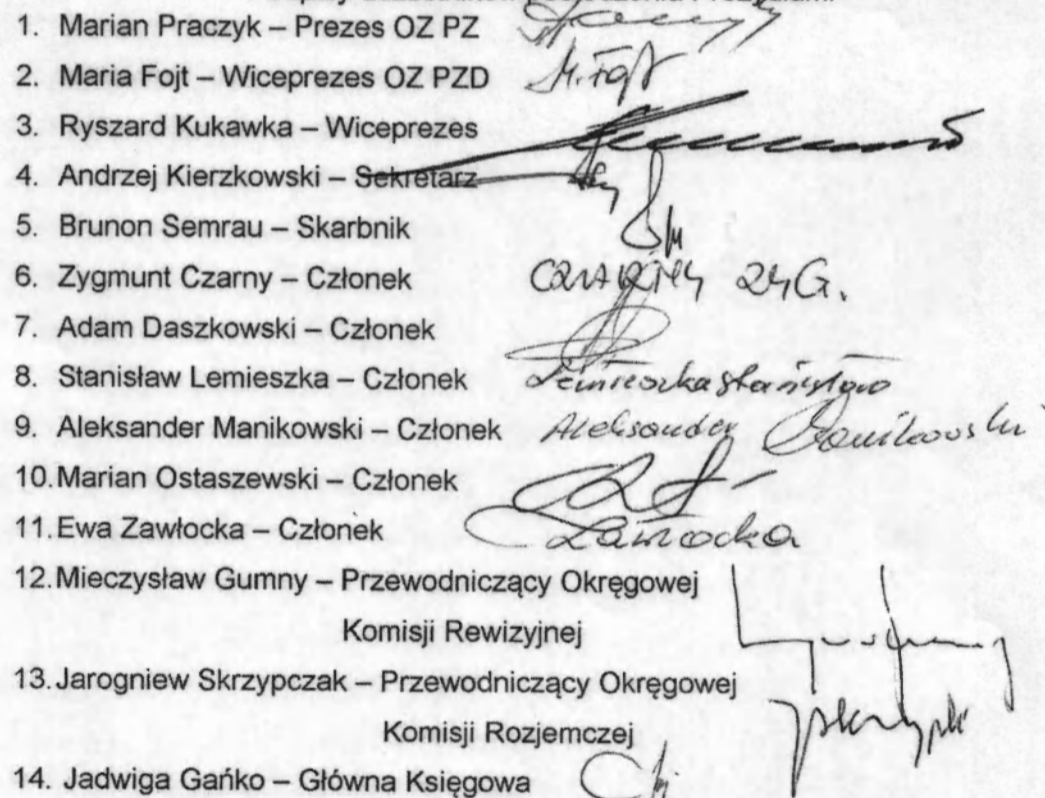 1. Marian Praczyk – Prezes OZ PZ
2. Maria Fojt – Wiceprezes OZ PZD M. Fojt
3. Ryszard Kukawka – Wiceprezes
4. Andrzej Kierzkowski – Sekretarz
5. Brunon Semrau – Skarbnik
6. Zygmunt Czarny – Członek CZARNY ZYG.
7. Adam Daszkowski – Członek
8. Stanisław Lemieszka – Członek Lemieszka Stanisław
9. Aleksander Manikowski – Członek Aleksander Manikowski
10. Marian Ostaszewski – Członek
11. Ewa Zawłocka – Członek Zawłocka
12. Mieczysław Gumny – Przewodniczący Okręgowej
Komisji Rewizyjnej
13. Jarogniew Skrzypczak – Przewodniczący Okręgowej
Komisji Rozjemczej
14. Jadwiga Gańko – Główna Księgowa